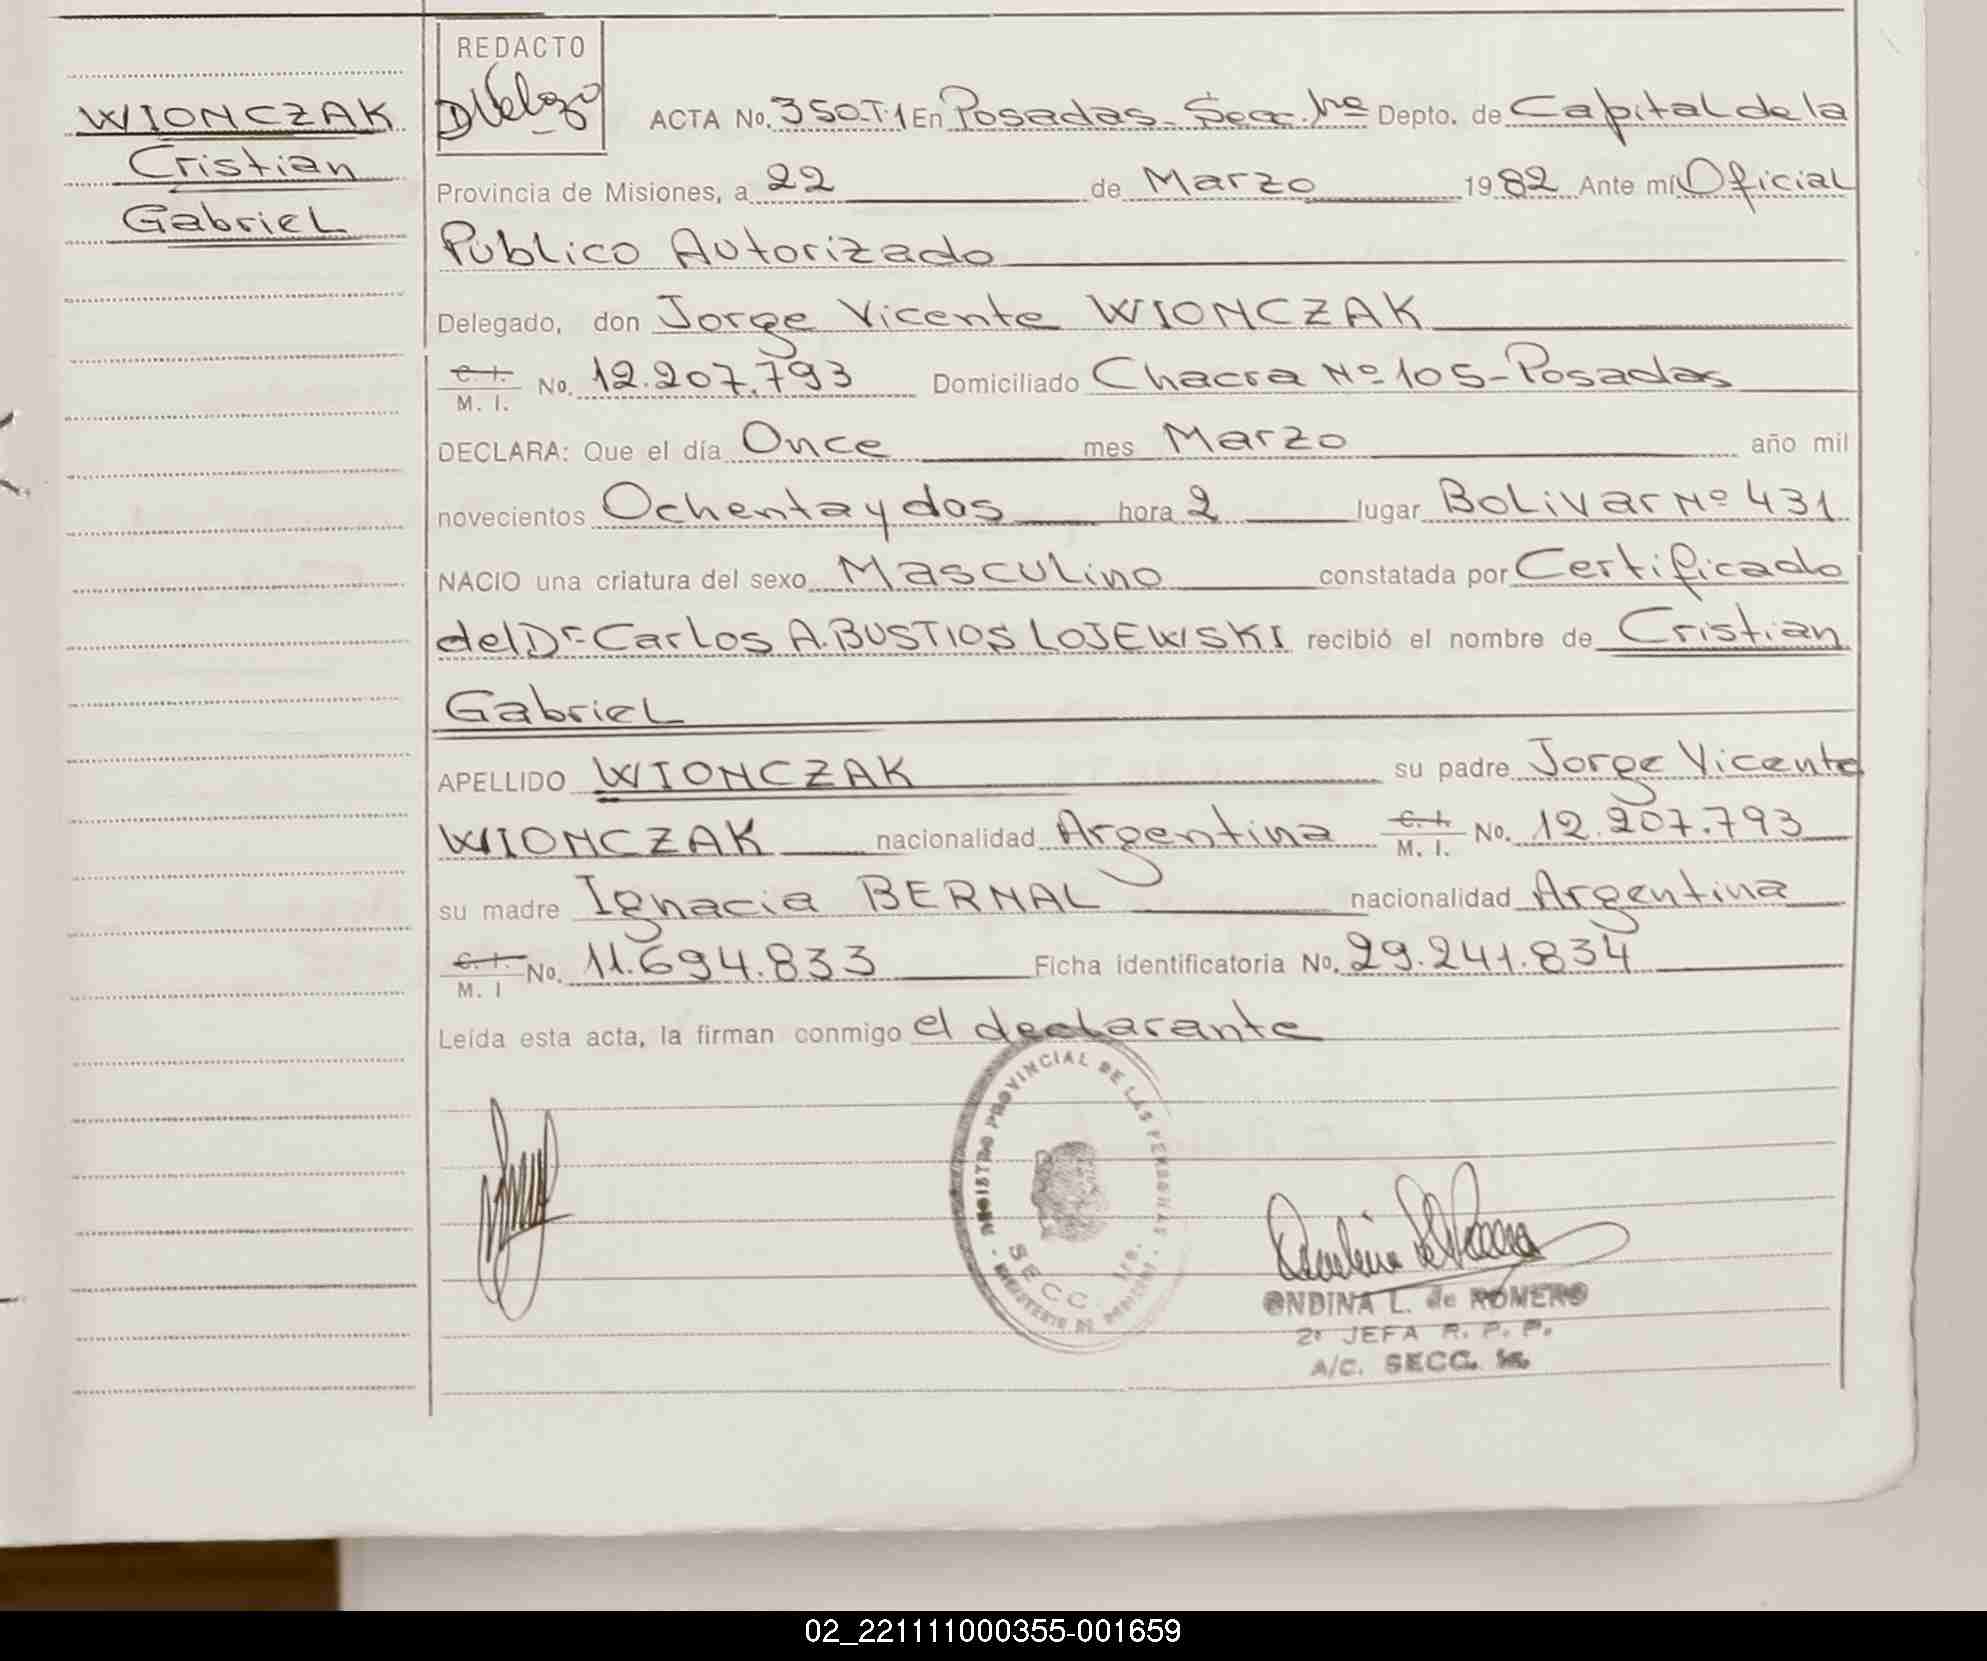 WIONCZAK
Cristian
Gabriel
REDACTO
ACTA No. 350.T.1 En Posadas - Secc. 1ra Depto. de Capital de la
Provincia de Misiones, a 22 de Marzo 1982 Ante mí Oficial
Publico Autorizado
Delegado, don Jorge Vicente WIONCZAK
C. I.
M. I. No. 12.207.793 Domiciliado Chacra Nº 105 - Posadas
DECLARA: Que el día Once mes Marzo año mil
novecientos Ochenta y dos hora 2 lugar Bolivar Nº 431
NACIO una criatura del sexo Masculino constatada por Certificado
del Dr. Carlos A. BUSTIOS LOJEWSKI recibió el nombre de Cristian
Gabriel
APELLIDO WIONCZAK su padre Jorge Vicente
WIONCZAK nacionalidad Argentina C. I.
M. I. No. 12.207.793
su madre Ignacia BERNAL nacionalidad Argentina
C. I.
M. I No. 11.694.833 Ficha identificatoria No. 29.241.834
Leída esta acta, la firman conmigo el declarante
REGISTRO PROVINCIAL DE LAS PERSONAS
SECC. 1ra.
ONDINA L. de ROMERO
2ª JEFA R. P. P.
A/C. SECC. 1ra.
02_221111000355-001659